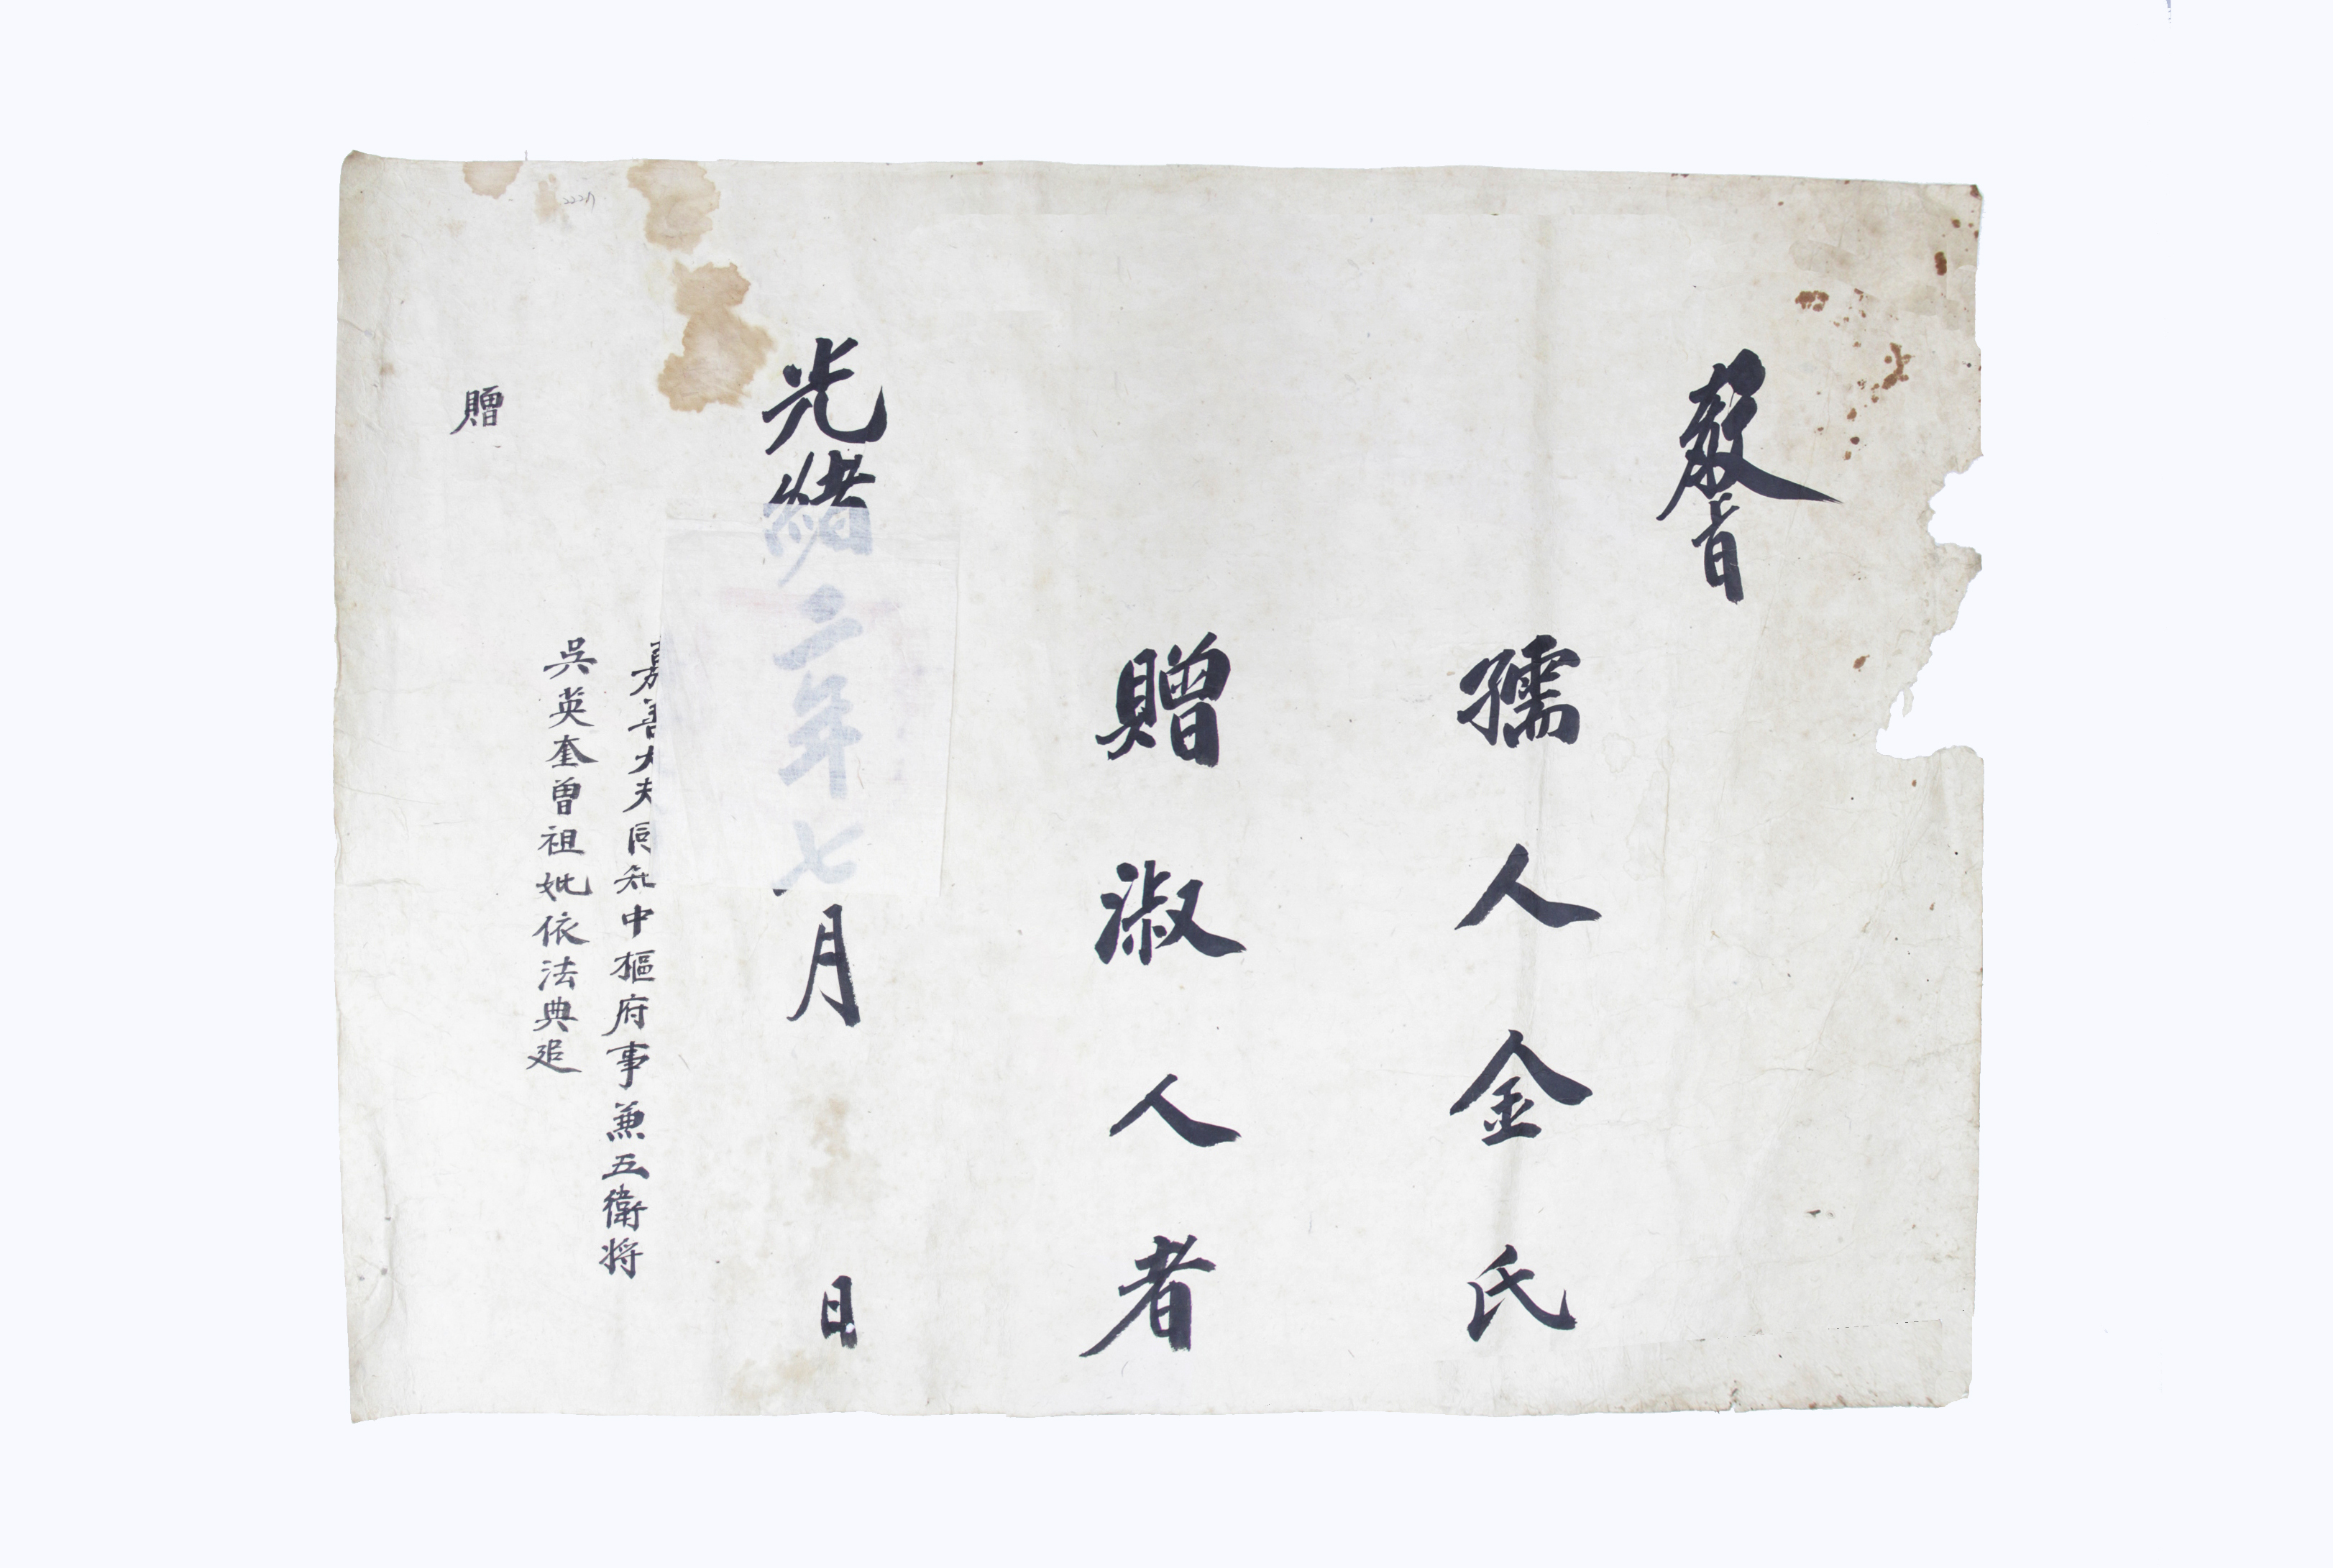 敎旨
孺人金氏
贈淑人者
光緖二年七月 日
嘉善大夫同知中樞府事兼五衛将
吳英奎曽祖妣依法典追
贈